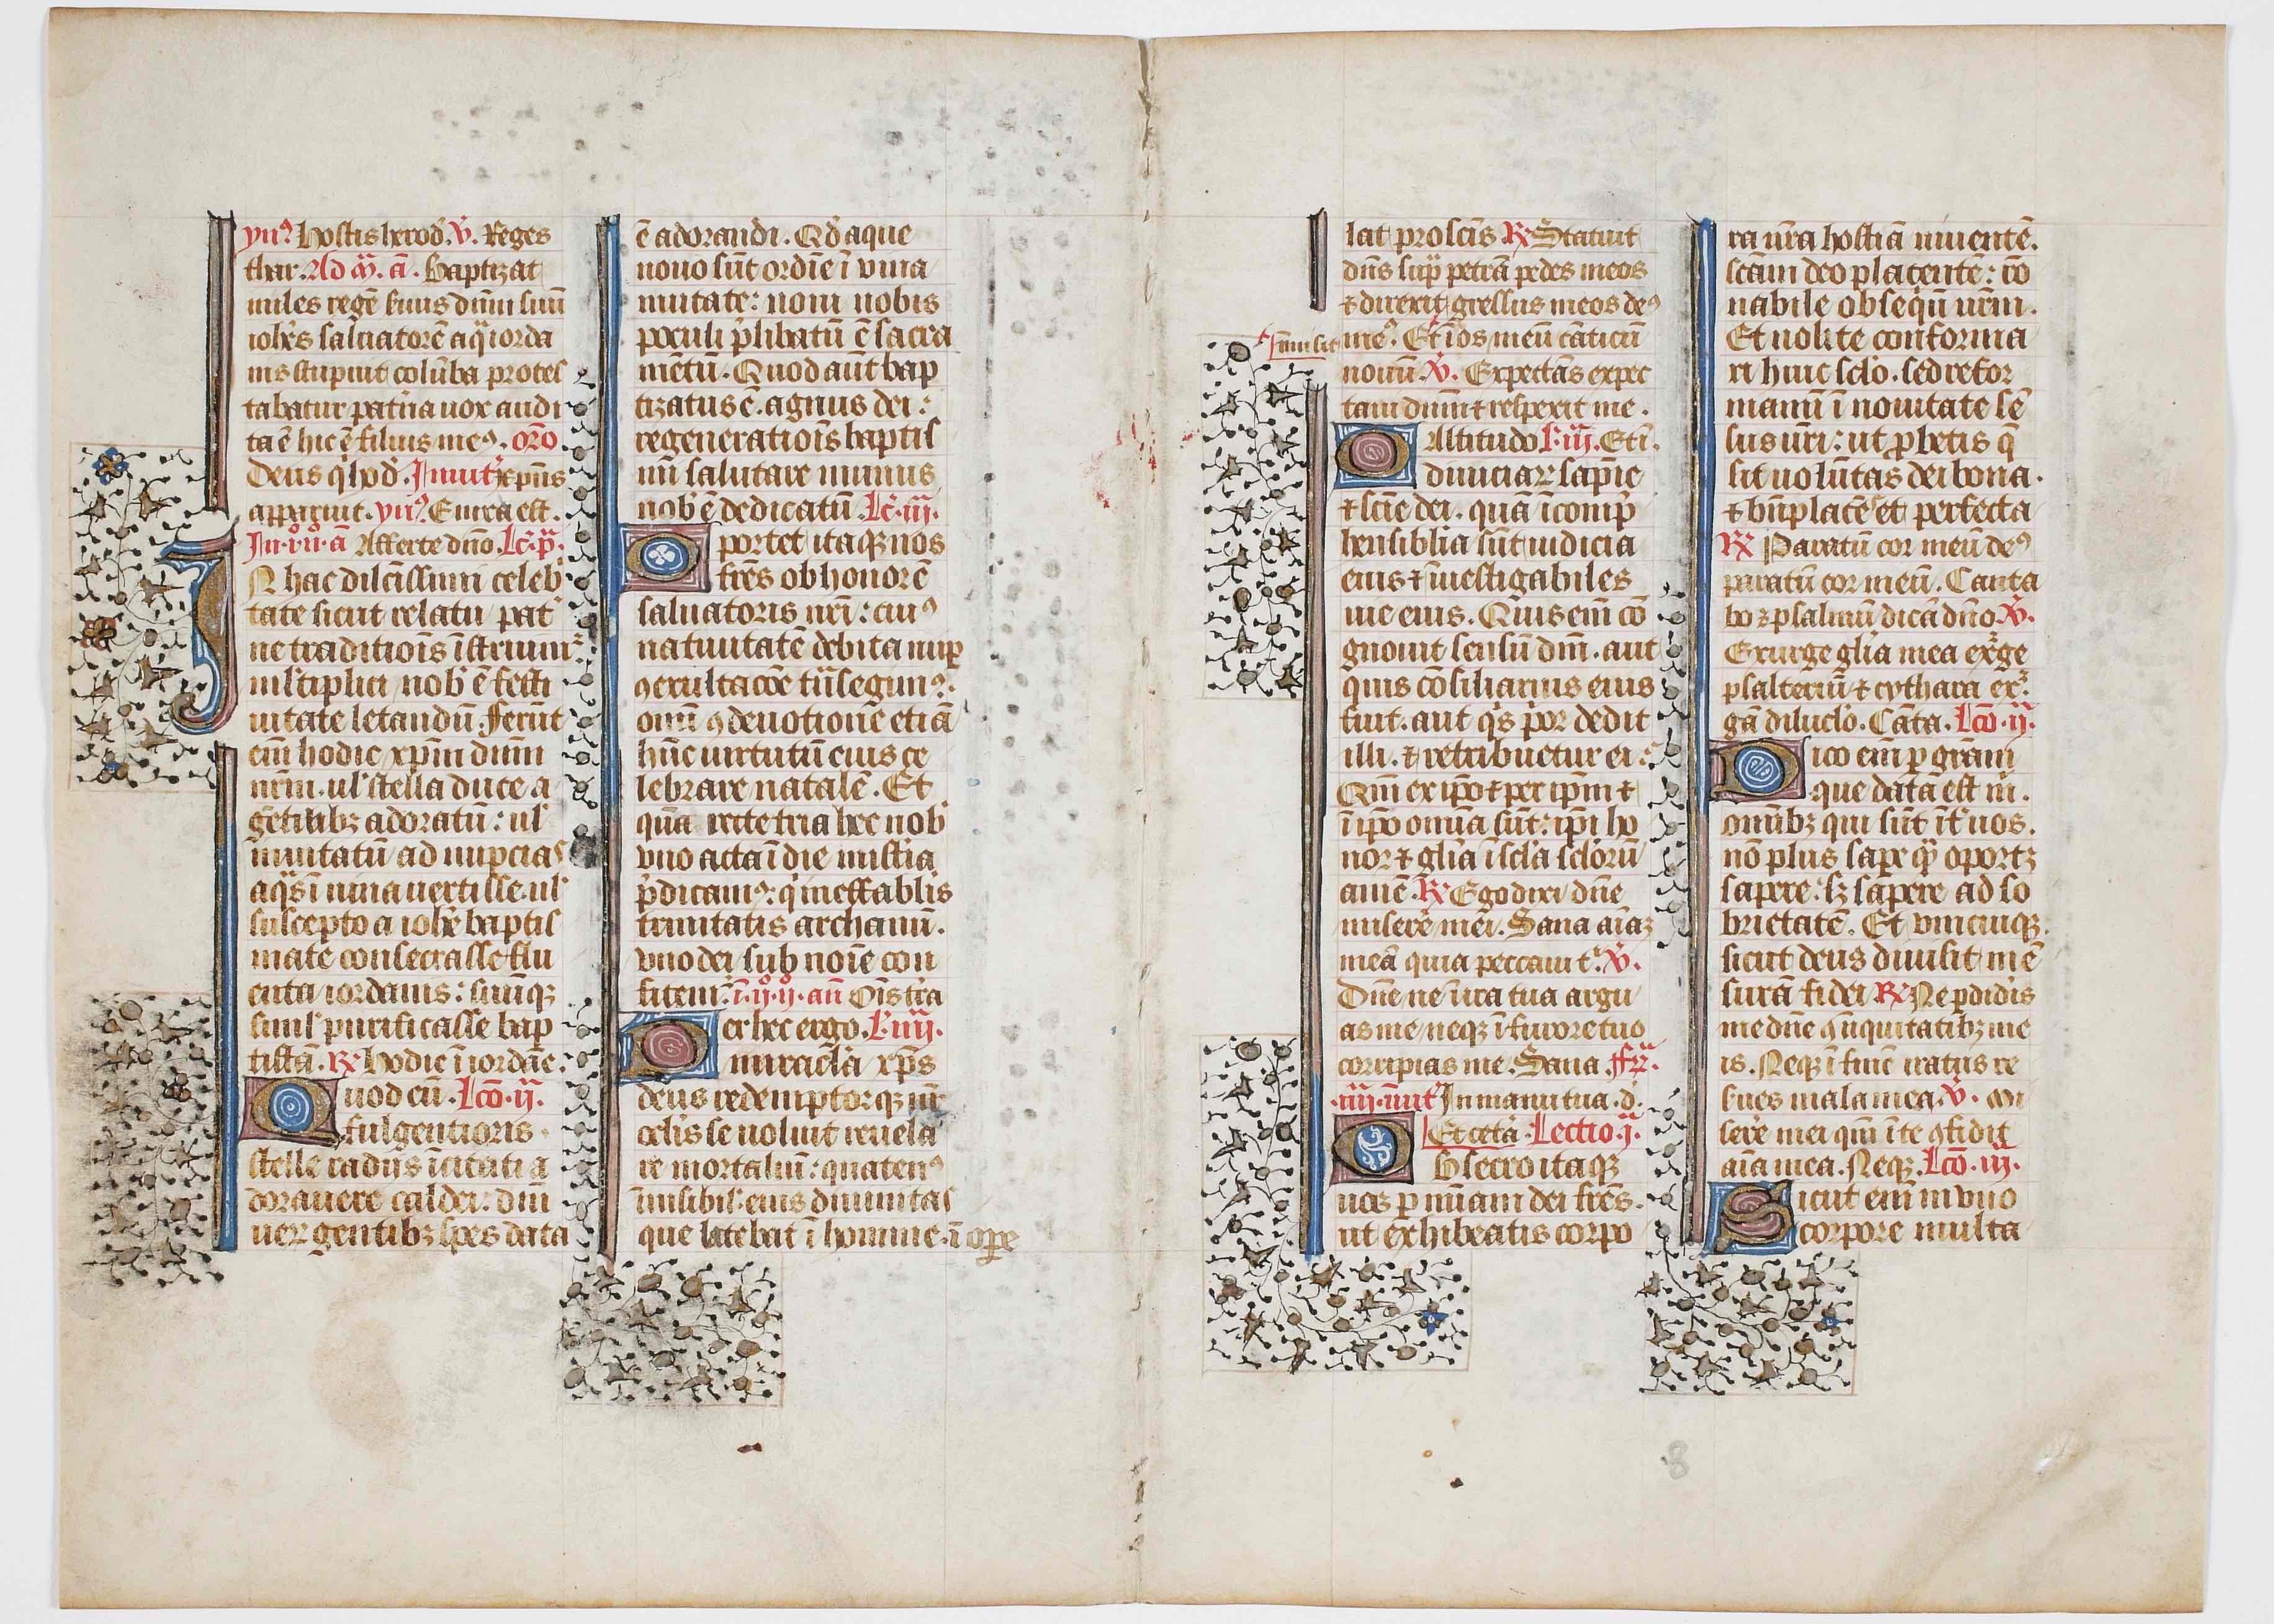 ynꝰ Hostis herod̕. ꝟ. Reges
thar. Ad m̄. ā. Baptizat
miles regē ẜuus dn̄m suū
ioh̄es saluatorē aq̄ iorda
nis stupuit colūba protes
tabatur pat̕na uox audi
ta ē hic ē filius meꝰ. oro
Deus q̇ hod̕. Inuit xp̄us
apparuit. ynꝰ. Euira est.
In.iͦ.nͦ.ā Afferte dn̄o. Lc̄. p̄.
IN hac dilc̄issimi celeb̕
tate sicut relatu pat̕
ne traditiōis īstruim̕
m̄ltiplici nob̕ ē festi
uitate letandū. Ferūt
em̄ hodie xp̄m dn̄m
nr̄m. ul̕ stella duce a
gētibꝫ adoratū: ul̕
īuitatū ad nupcias
aq̄s ī uina uertisse. ul̕
suscepto a ioh̄e baptis
mate consecrasse flu
enta iordanis: simūqꝫ
siml̕ purificasse bap
tistā. ℞ Hodie ī iordāe:
Quod cū. Lc̄o. ij.
fulgentioris
stelle radijs īcitati a
dorauere caldei. dn̄i
uerꝫ gentibꝫ spes data
ē adorandi. Qd̕ aque
nouo sūt ordīe ī uina
mutate: noui nobis
poculi p̕libatū ē sacra
mētū. Quod aūt bap
tizatus ē. agnus dei:
regeneratiōis baptis
mi salutare munus
nob̕ ē dedicatū. Lc̄. iij.
Oportet itaqꝫ nos
fr̄es ob honorē
saluatoris nr̄i: cuiꝰ
natiuitatē debita nuꝑ
ꝯexultac̄oe t̄īsegimꝰ.
omī ꝯdeuotionē etiā
hūc uirtutū eius ce
lebrare natalē. Et
qūa recte tria hec nob̕
vno acta ī die mistia
p̕dicamꝰ: q̇ ineffabilis
trinitatis archanū.
vno dei sub noīe con
fitem̕. ī. ijͦ. nͦ. an̄ Oīs tr̄a
Per hec ergo. L. iiij.
miracl̄a xp̄s
deus redemptorqꝫ nr̄
celis se uoluit reuela
re mortaliū: quatenꝰ
īuisibil̕ eius diuinitas
que latebat ī homine. ī oꝑe
lat pro scīs ℞ Statuit
dn̄s suꝑ petrā pedes meos
⁊ direxit gressus meos deꝰ
mē. Et ī os meū cāticū
nouū. ꝟ. Expectās expec
taui dn̄m ⁊ respexit me.
O Altitudo L. iij. Eti.
diuiciarꝫ sapiē
⁊ sciē dei. quā īcomp̕
hensibl̄ia sūt iudicia
eius ⁊ īuestigabiles
uie eius. Quis em̄ cō
gnouit sensū dn̄i. aut
quis cōsiliarius eius
fuit. aut q̇s p̕or dedit
illi. ⁊ retribuetur ei:
Qm̄ ex ip̄o ⁊ per ip̄m ⁊
ī ip̄o omīa sūt: ip̄i ho
nor ⁊ gl̄ia ī scl̄a scl̄orū
amē. ℞ Ego dixi dn̄e
miserē mei. Sana aīaꝫ
meā quia peccaui t̕. ꝟ.
Dn̄e ne ī ira tua argu
as me neqꝫ ī furore tuo
corripias me. Sana. Fr̄.
.iiij. īuit̕ In manu tua. d.
Et cet̕a. Lectio. j.
Obsecro itaqꝫ
uos ꝑ mīam dei fr̄es.
ut exhibeatis corpo
ra ur̄a hostiā uiuentē.
scām deo placentē: ro
nabile obsequū ur̄m.
Et nolite conforma
ri huic sclo. sed refor
mamī ī nouitate sē
sus ur̄i: ut ꝓbetis q̄
sit uolūtas dei bona.
⁊ bn̄placēs et perfecta
℞ Paratū cor meū deꝰ
paratū cor meū. Canta
bo ⁊ psalmū dicā dn̄o ꝟ.
Exurge gl̄ia mea ex̕ge
psalteriū ⁊ cythara ex̕
gā diluclo. Cāta. Lc̄o. ij.
Dico em̄ ꝑ grām
que data est m̄.
omībꝫ qui sūt īt̕ uos.
nō plus saꝑe q̄ꝫ oportꝫ
sapere: sꝫ sapere ad so
brietatē. Et vnicuiqꝫ
sicut deus diuisit mē
surā fidei ℞ Ne ꝑdidis
me dn̄e cū īiquitatibꝫ me
is. Neqꝫ ī finē iratus re
ẜues mala mea. ꝟ. Mi
serē mei qm̄ ī te ꝯfidit
aīa mea. Neqꝫ. Lc̄o. iij.
Sicut em̄ in vno
corpore multa
8